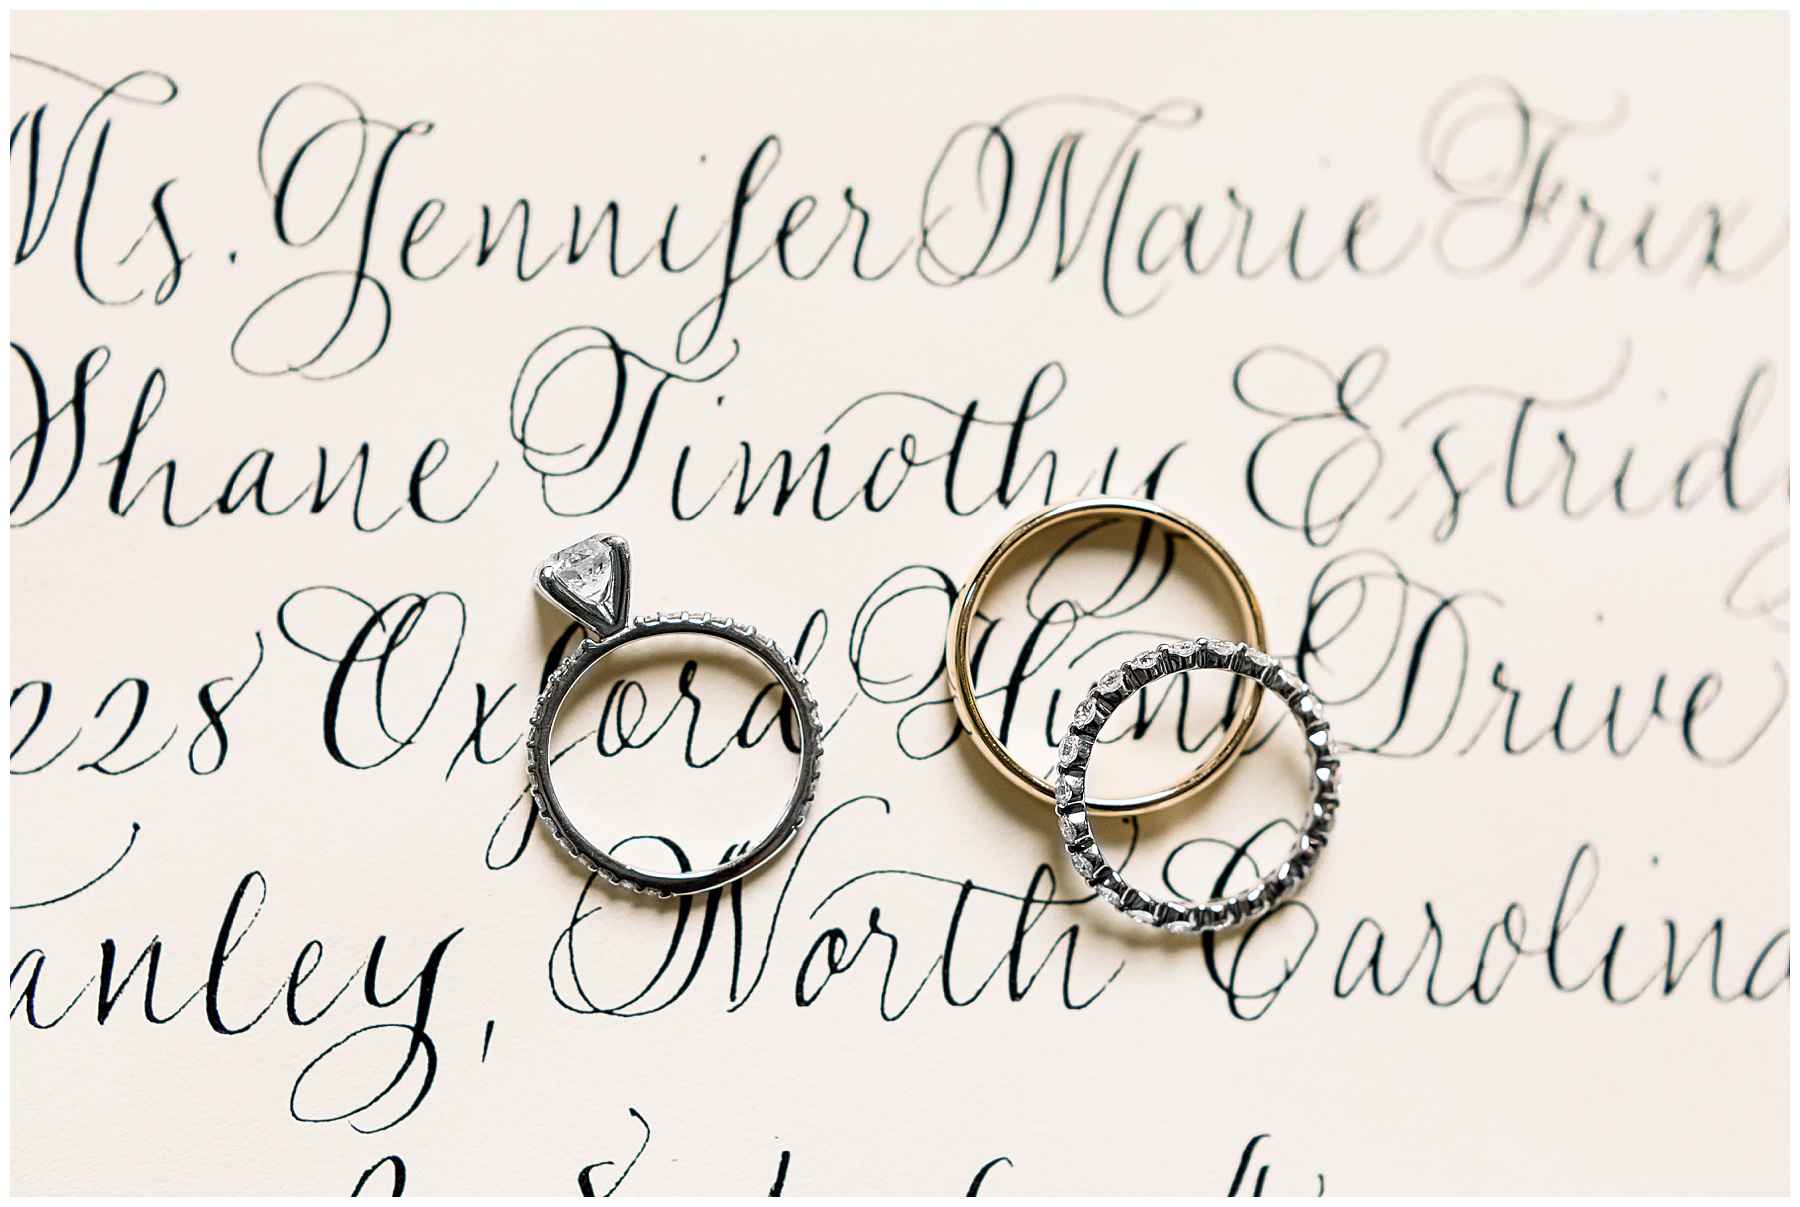 Ms. Jennifer Marie Frix
Shane Timothy Estridg
228 Oxford Hunt Drive
anley, North Carolina